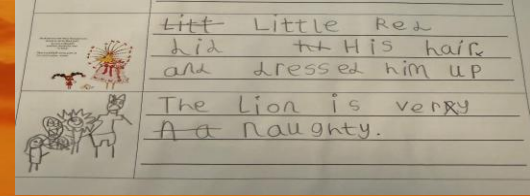 Litt Little Red
did ht His hair
and dressed him up
The Lion is very
A a naughty.